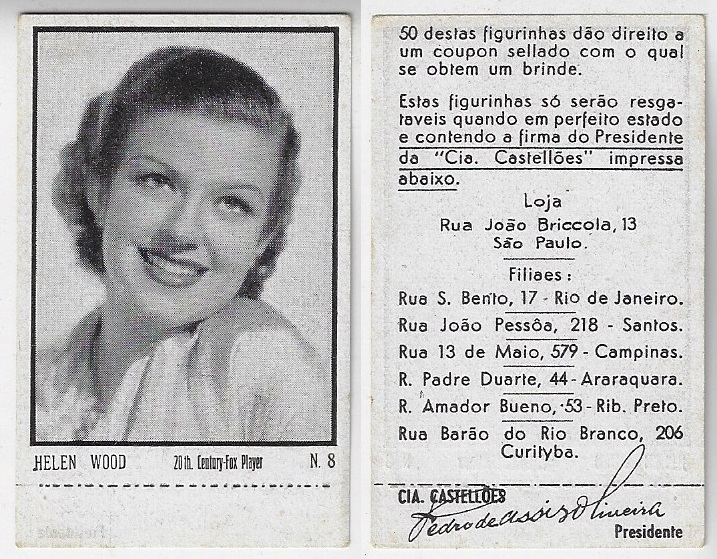 HELEN WOOD 20th. Century-Fox Player N. 8
50 destas figurinhas dão direito a
um coupon sellado com o qual
se obtem um brinde.
Estas figurinhas só serão resga-
taveis quando em perfeito estado
e contendo a firma do Presidente
da "Cia. Castellões" impressa
abaixo.
Loja
Rua João Briccola, 13
São Paulo.
Filiaes :
Rua S. Bento, 17 - Rio de Janeiro.
Rua João Pessôa, 218 - Santos.
Rua 13 de Maio, 579 - Campinas.
R. Padre Duarte, 44 - Araraquara.
R. Amador Bueno, 53 - Rib. Preto.
Rua Barão do Rio Branco, 206
Curityba.
CIA. CASTELLÕES
Pedro de Assiz Oliveira
Presidente